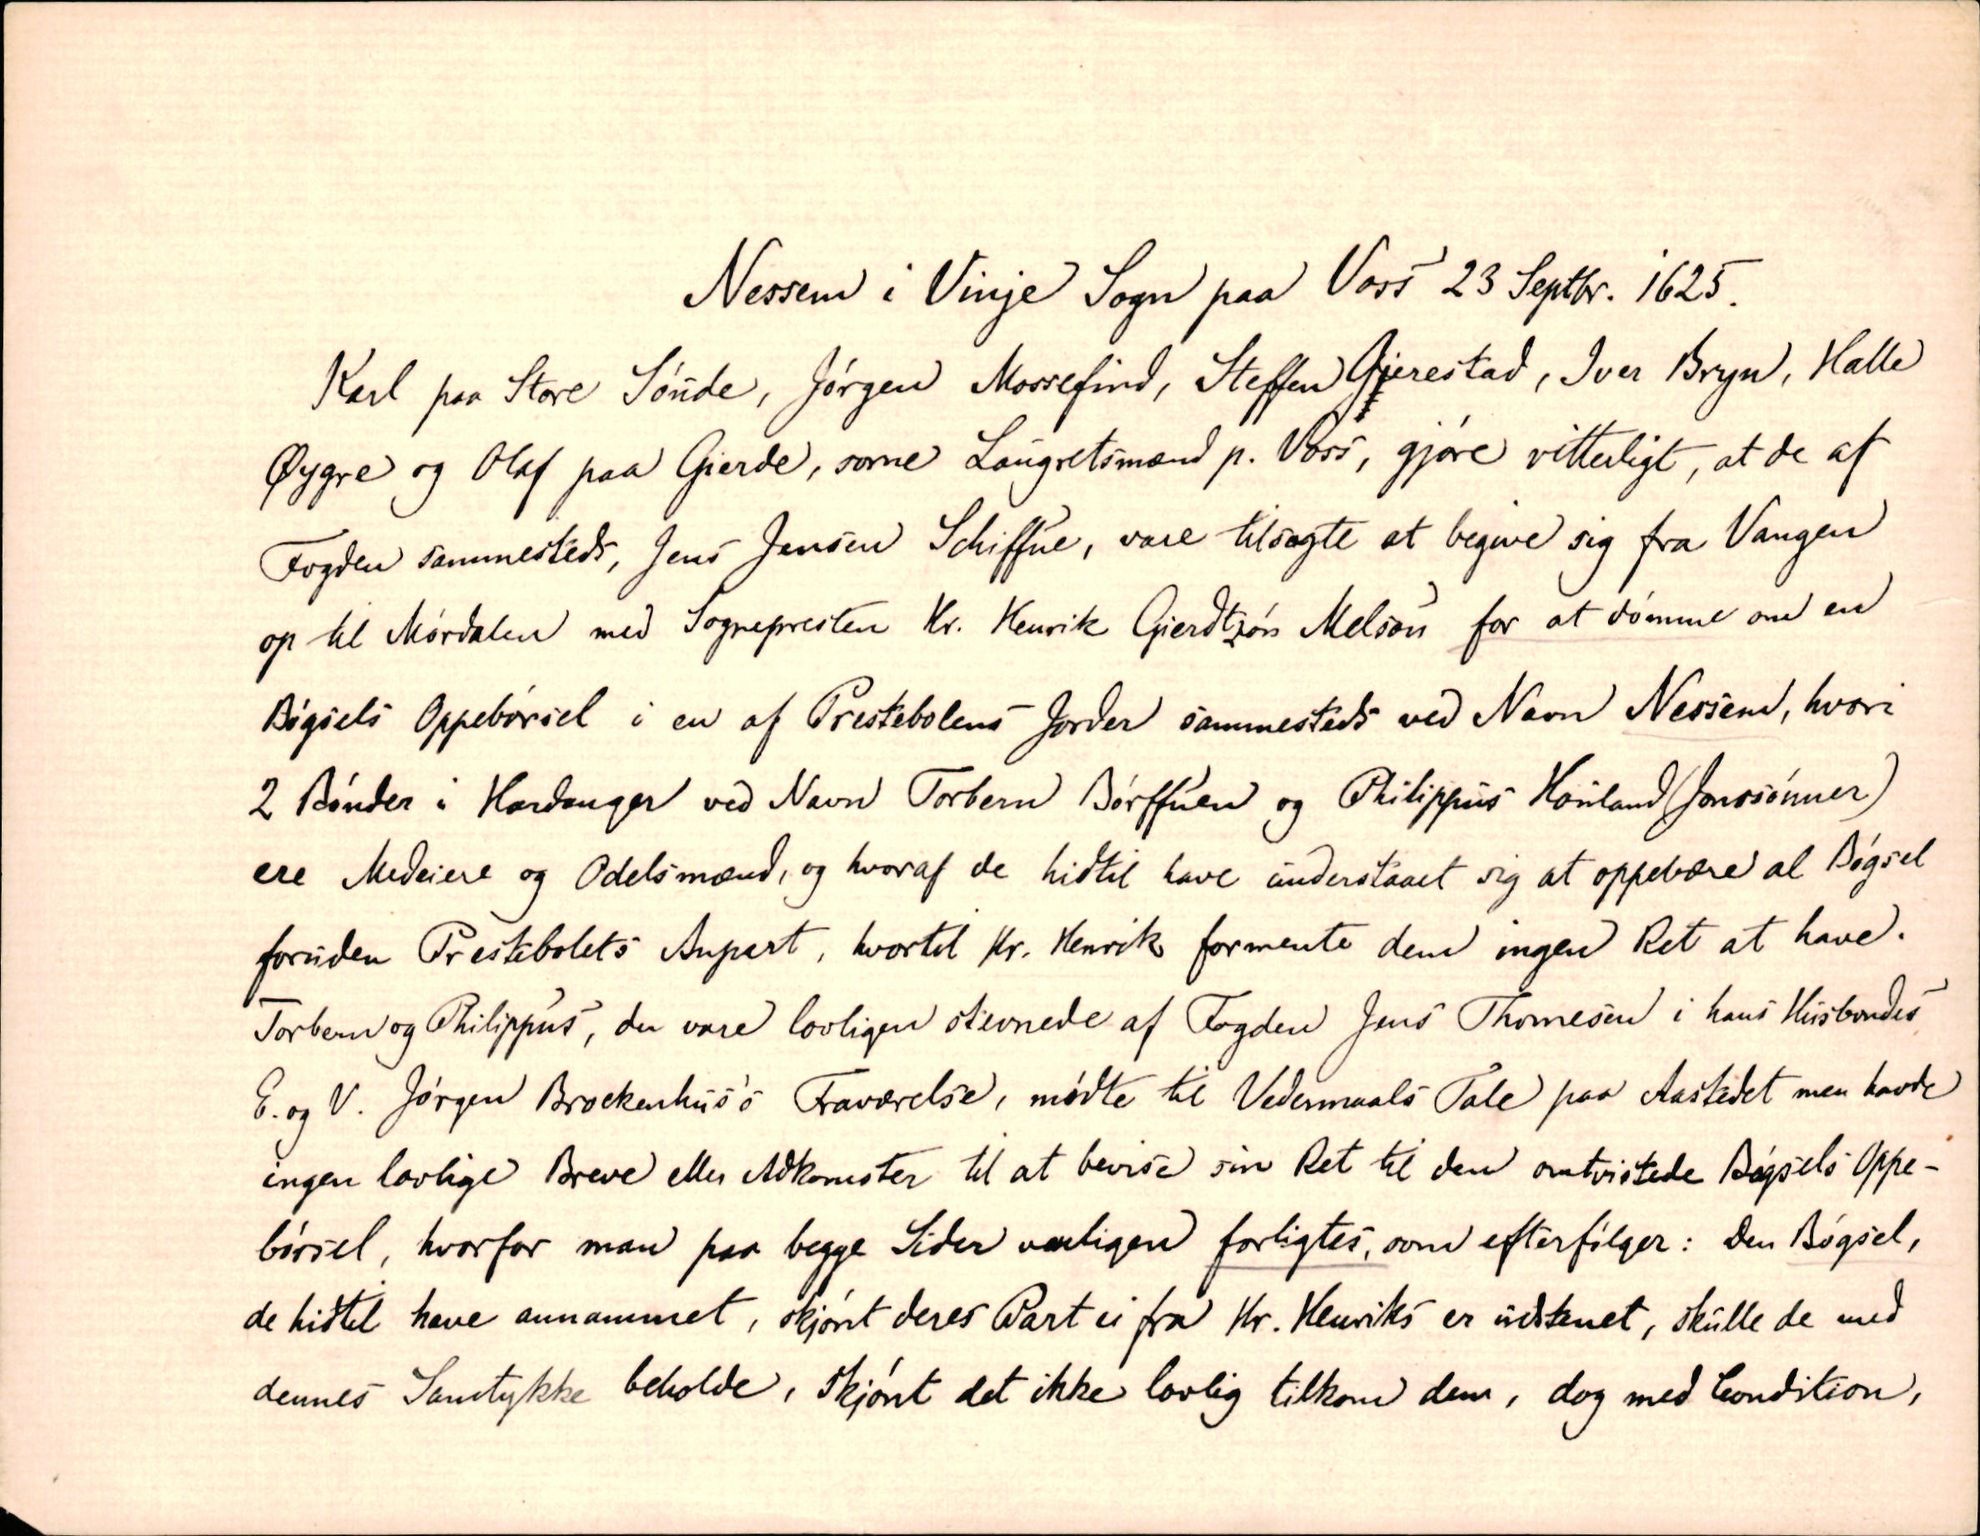 Nessem i Vinje Sogn paa Voss 23 Septbr. 1625.
Karl paa Store Sónde, Jórgen Mossefind, Steffen Gjerestad, Iver Bryn, Halle
Øygre og Olaf paa Gierde, sorne Laugretsmænd p. Voss, gjóre vitterligt, at de af
Fogden sammesteds, Jens Jensen Schiffue, vare tilsagte at begive sig fra Vangen
op til Mórdalen med Sognepresten Hr. Henrik Gierdtzón Melsou for at dómme om en
Bógsels Oppebórsel i en af Prestebolens Jorder sammesteds ved Navn Nessem, hvori
2 Bónder i Hardanger ved Navn Torbern Bórffuen og Philippus Houland (Jonssónner)
ere Medeiere og Odelsmænd, og hvoraf de hidtil have understaaet sig at oppebære al Bógsel
foruden Prestebolets Anpart, hvortil Hr. Henrik formente dem ingen Ret at have.
Torbern og Philippus, der vare lovligen stevnede af Fogden Jens Thomesen i hans Husbondes
E. og V. Jórgen Brockenhus's Fraværelse, mødte til Vedermaals Tale paa Aastedet men havde
ingen lovlige Breve eller Adkomster til at bevise sin Ret til den omtvistede Bógsels Oppe-
bórsel, hvorfor man paa begge Sider venligen forligtes, som efterfólger: Den Bógsel,
de hidtil have annammet, skjónt deres Part ei fra Hr. Henriks er udstenet, skulle de med
dennes Samtykke beholde, skjónt det ikke lovlig tilkom dem, dog med Condition,